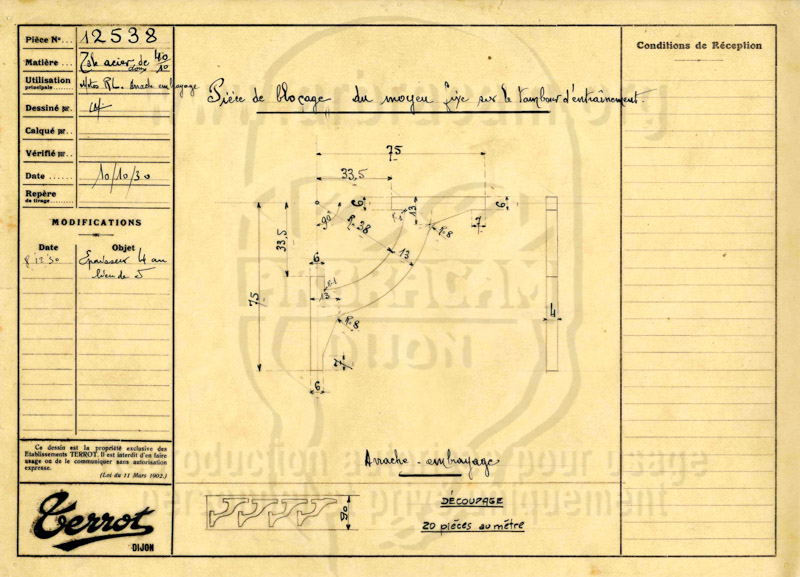 Pièce N°... 12538
Matière... Tôle acier doux de 40/10
Utilisation principale Motos RL. Arrache embrayage
Dessiné pr.
Calqué pr..
Vérifié pr..
Date ...... 10/10/30
Repère de tirage
MODIFICATIONS
Date Objet
8 12 30 Epaisseur 4 au
lieu de 5
Ce dessin est la propriété exclusive des
Etablissements TERROT. Il est interdit d'en faire
usage ou de le communiquer sans autorisation
expresse.
(Loi du 11 Mars 1902.)
Terrot
DIJON
Pièce de blocage du moyeu fixe sur le tambour d'entraînement.
75
33,5
6
13
6
7
90°
R=38
R=8
33,5
13
6
75
13
R=8
4
7
6
Arrache-embrayage
50
DÉCOUPAGE
20 pièces au mètre
Conditions de Réception
AMORACAM
DIJON
reproduction autorisée pour usage
personnel et privé uniquement